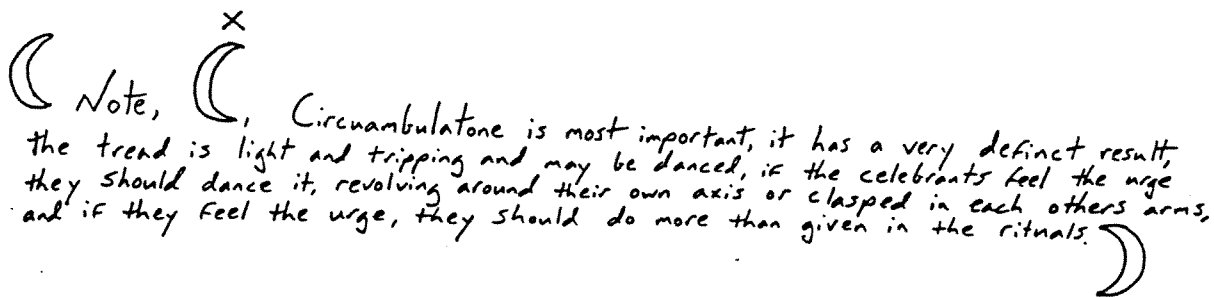 Note, , Circuambulatone is most important, it has a very definct result,
the tread is light and tripping and may be danced, if the celebrants feel the urge
they should dance it, revolving around their own axis or clasped in each others arms,
and if they feel the urge, they should do more than given in the rituals.